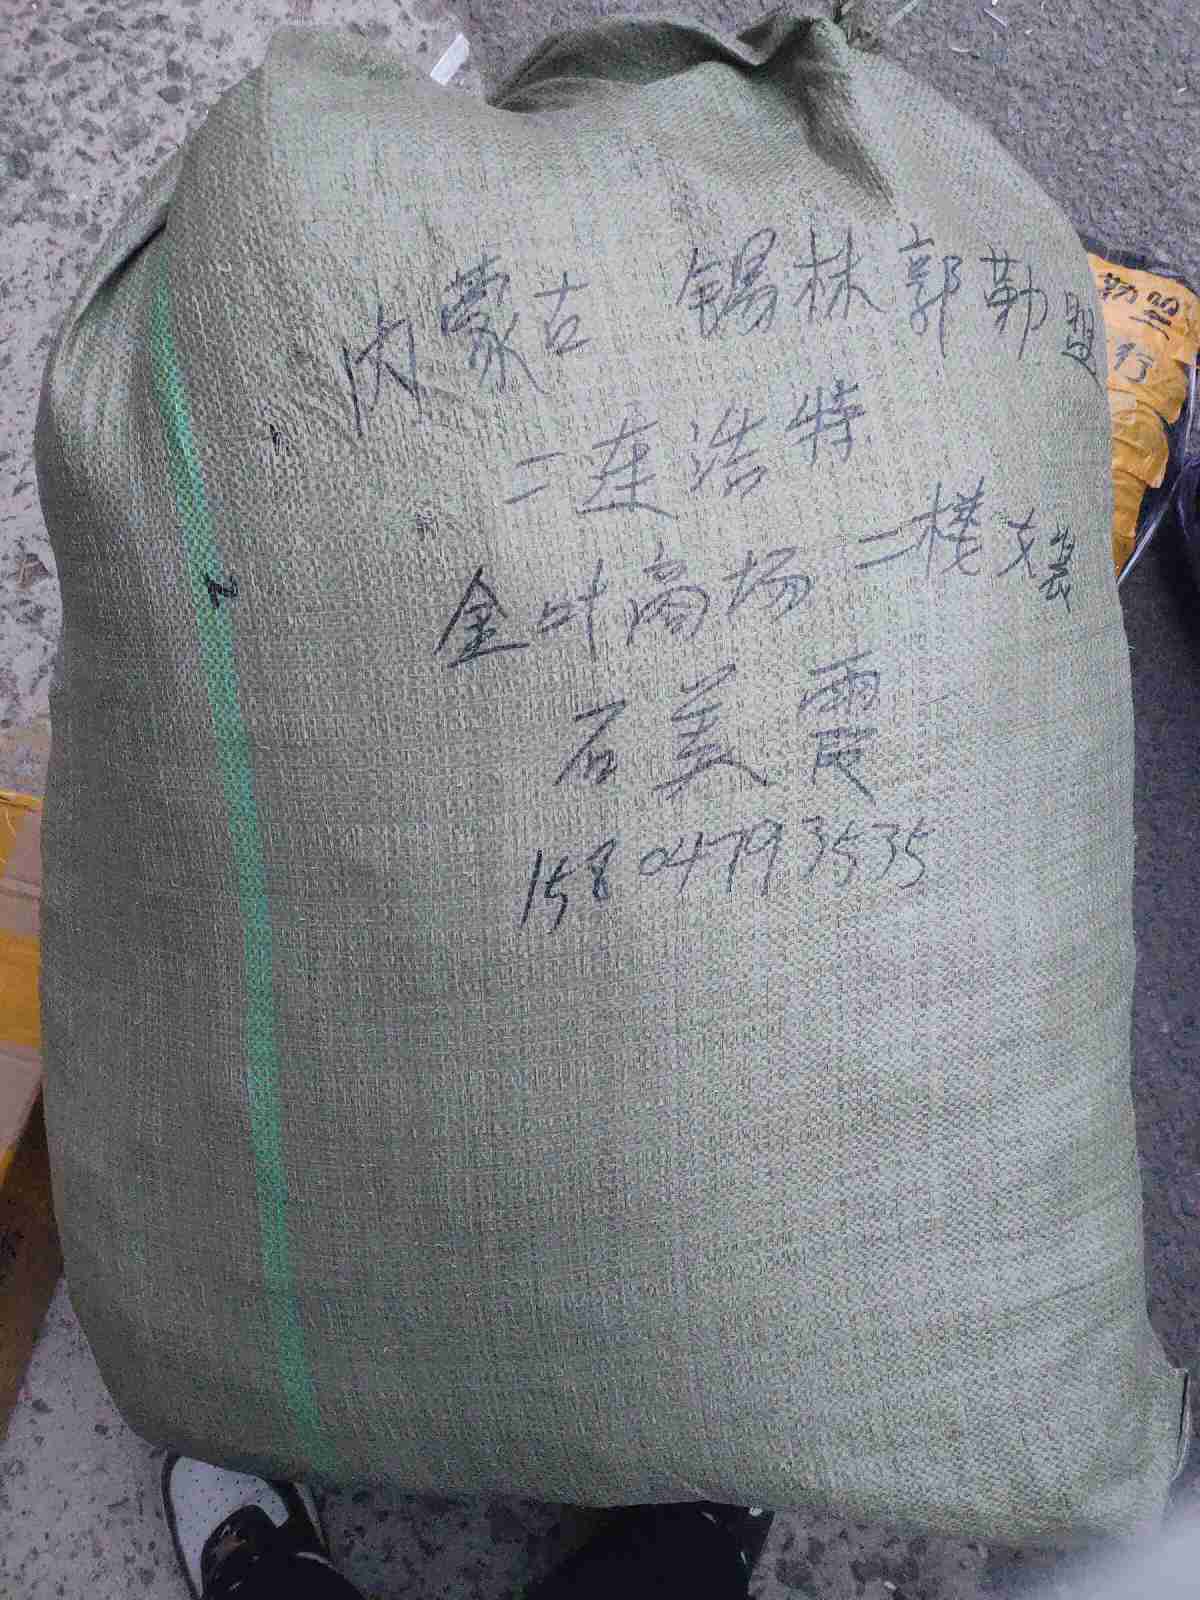 内蒙古 锡林郭勒盟
二连浩特
金叶商场二楼女装
石美霞
15804793535
勒盟
行